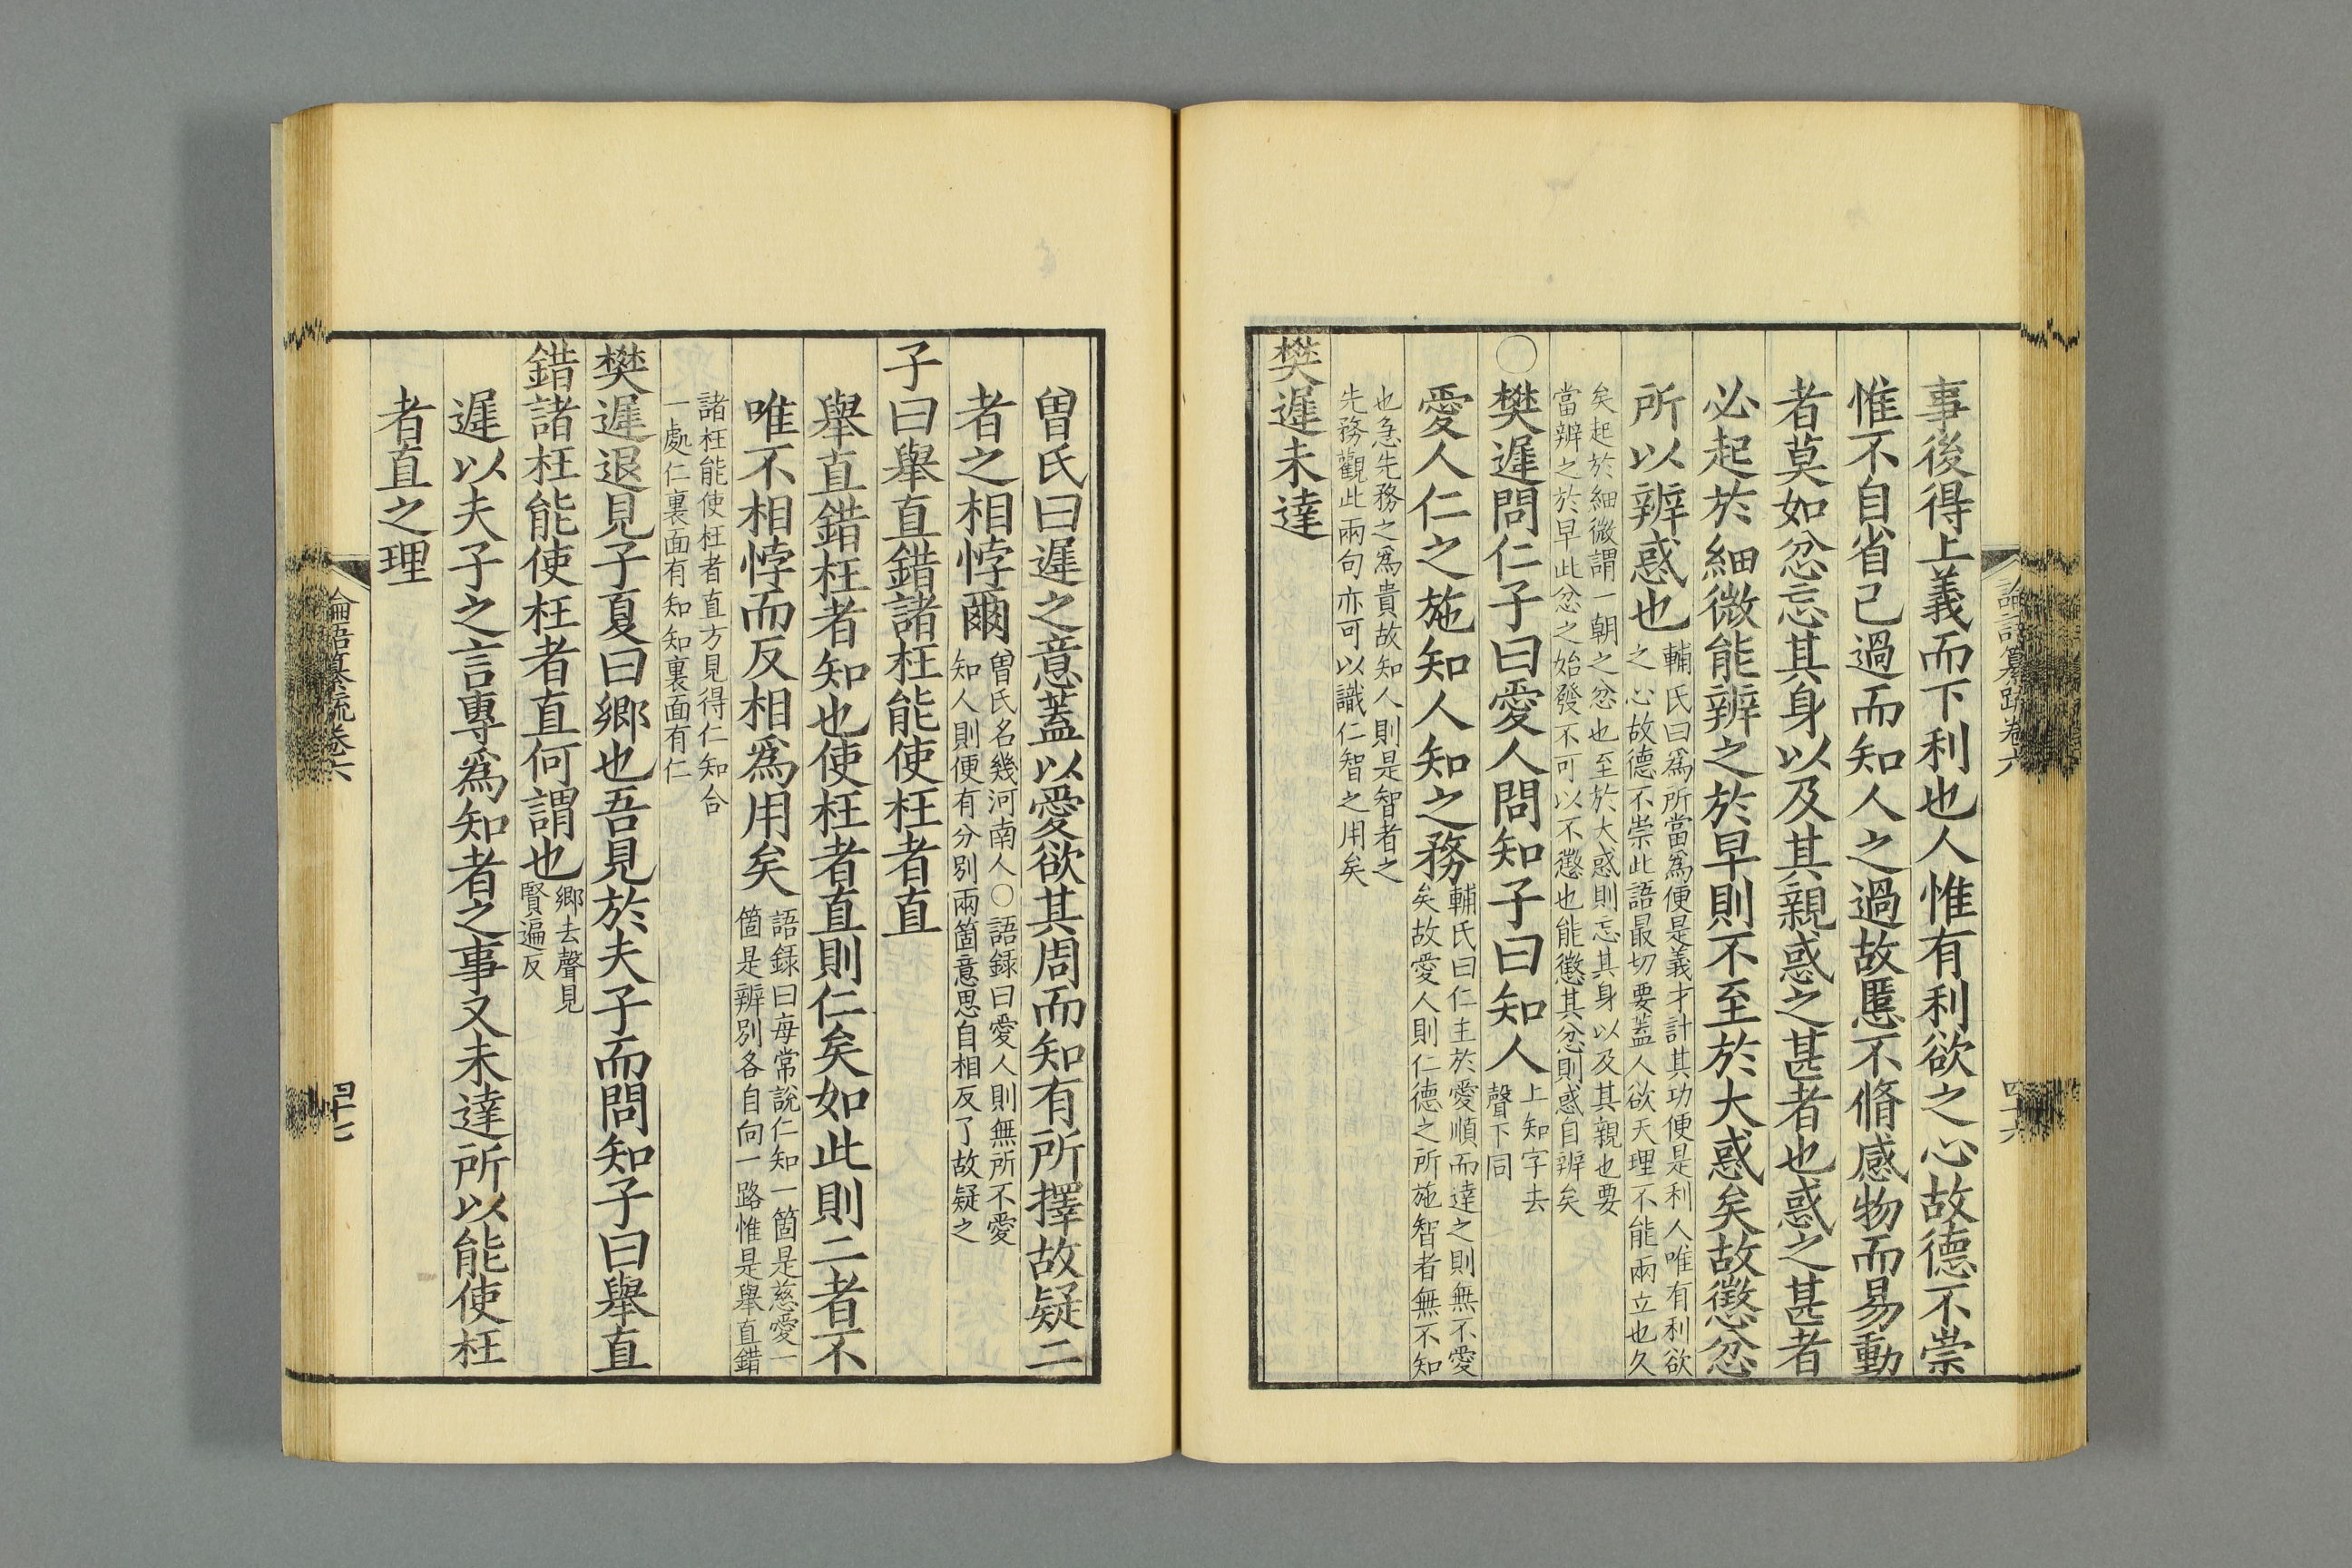 論語纂疏卷六
四十六
事後得上義而下利也人惟有利欲之心故德不崇
惟不自省己過而知人之過故慝不脩感物而易動
者莫如忿忘其身以及其親惑之甚者也惑之甚者
必起於細微能辨之於早則不至於大惑矣故懲忿
所以辨惑也
輔氏曰爲所當爲便是義才計其功便是利人唯有利欲
之心故德不崇此語最切要蓋人欲天理不能兩立也久
矣起於細微謂一朝之忿也至於大惑則忘其身以及其親也要
當辨之於早此忿之始發不可以不懲也能懲其忿則惑自辨矣
○樊遲問仁子曰愛人問知子曰知人
上知字去
聲下同
愛人仁之施知人知之務
輔氏曰仁主於愛順而達之則無不愛
矣故愛人則仁德之所施智者無不知
也急先務之爲貴故知人則是智者之
先務觀此兩句亦可以識仁智之用矣
樊遲未達
曾氏曰遲之意蓋以愛欲其周而知有所擇故疑二
者之相悖爾
曾氏名幾河南人○語錄曰愛人則無所不愛
知人則便有分別兩箇意思自相反了故疑之
子曰舉直錯諸枉能使枉者直
舉直錯枉者知也使枉者直則仁矣如此則二者不
唯不相悖而反相爲用矣
語録曰每常說仁知一箇是慈愛一
箇是辨別各自向一路惟是舉直錯
諸枉能使枉者直方見得仁知合
一處仁裏面有知知裏面有仁
樊遲退見子夏曰鄉也吾見於夫子而問知子曰舉直
錯諸枉能使枉者直何謂也
鄉去聲見
賢遍反
遲以夫子之言專爲知者之事又未達所以能使枉
者直之理
論語纂疏卷六
四十七